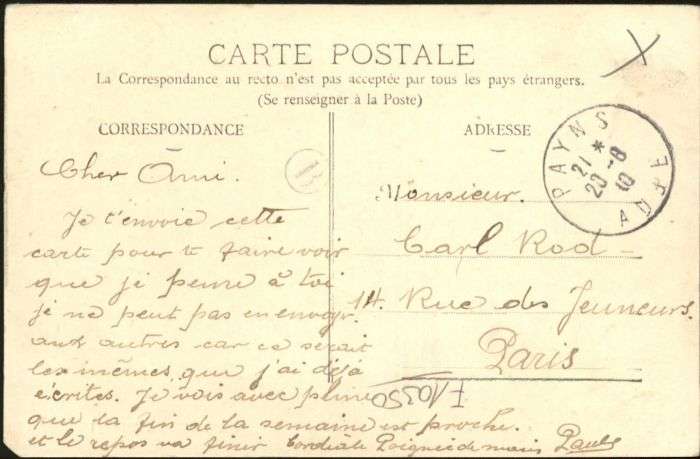 CARTE POSTALE
La Correspondance au recto n'est pas acceptée par tous les pays étrangers.
(Se renseigner à la Poste)
CORRESPONDANCE
Cher Ami.
Je t'envoie cette
carte pour te faire voir
que je pense à toi
je ne peut pas en envoyer
aux autres car ce serait
les mêmes que j'ai déjà
écrites. Je vois avec plaine
que la fin de la semaine est proche.
et le repos va finir Cordiale Poignée de main Paul
ADRESSE
Monsieur.
Carl Rod
14. Rue des Jeuneurs.
Paris
PAYNS
21 *
20 -8
10
AUBE
F10350